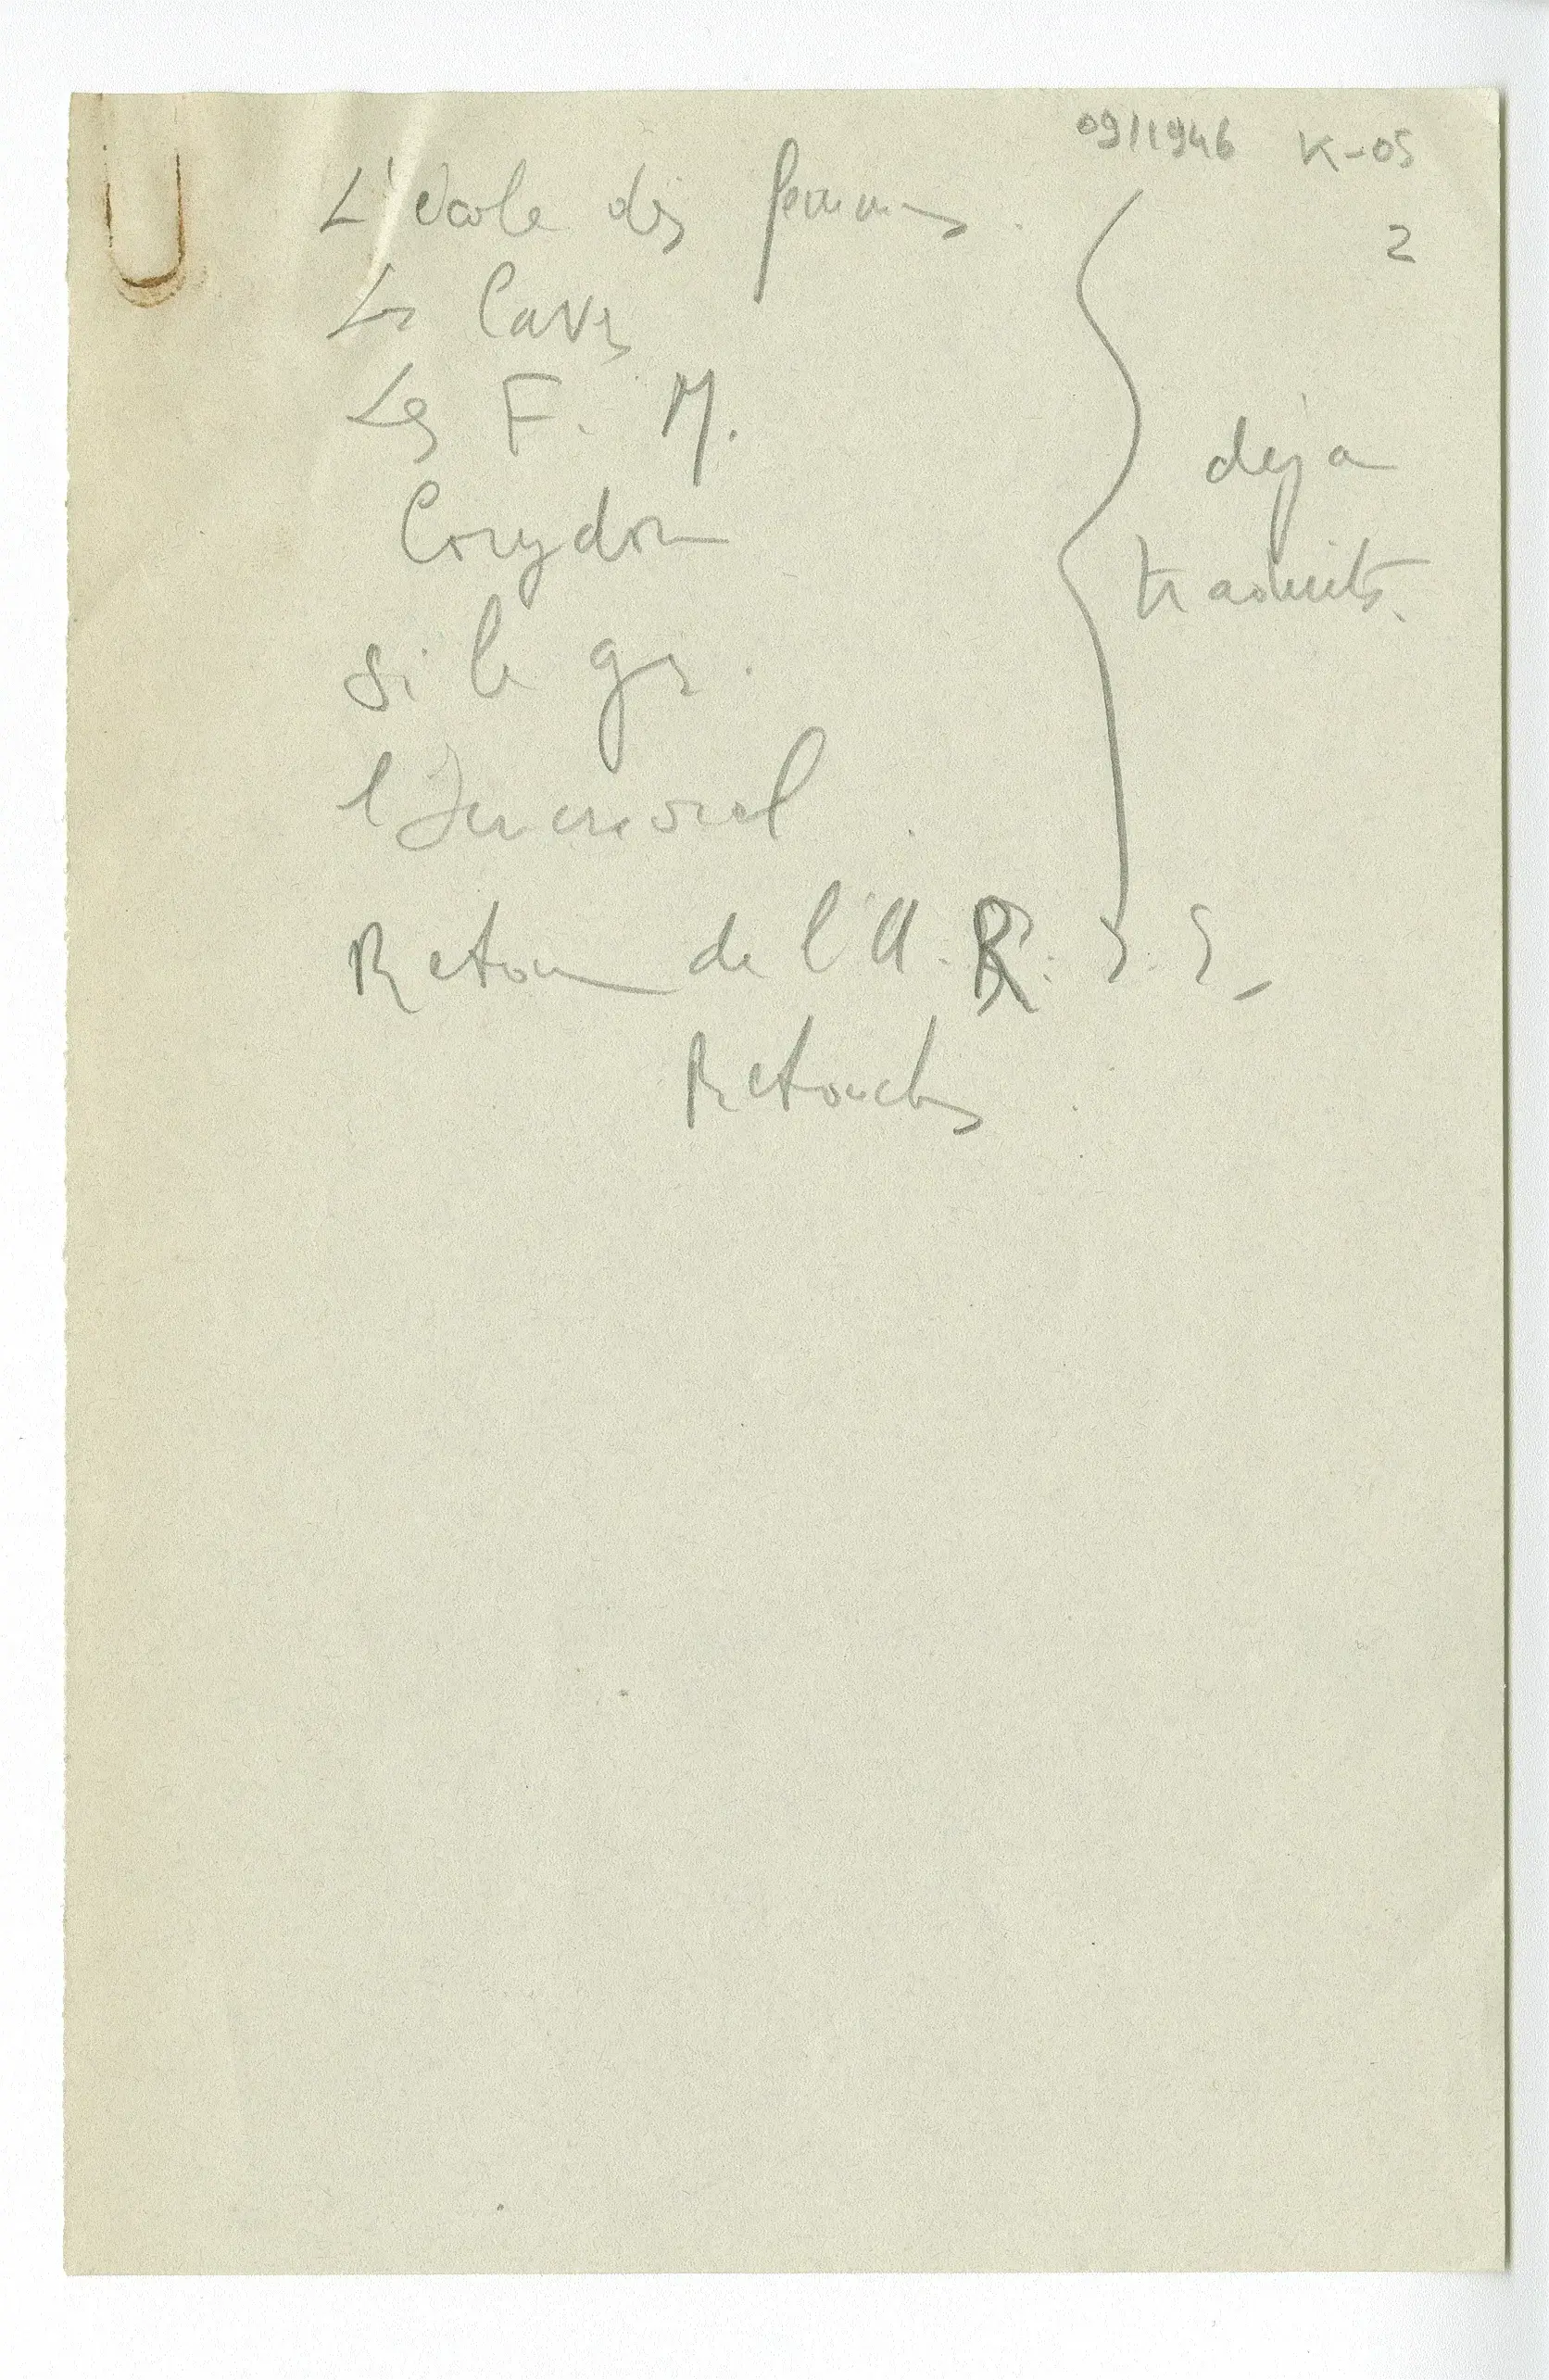 09/1946 K-05
2
L'école des femmes.
Les Caves
Les F. M.
Corydon
si le gr.
l'Immoral
Retour de l'U.R.S.S.
Retouches
déja
traduits.